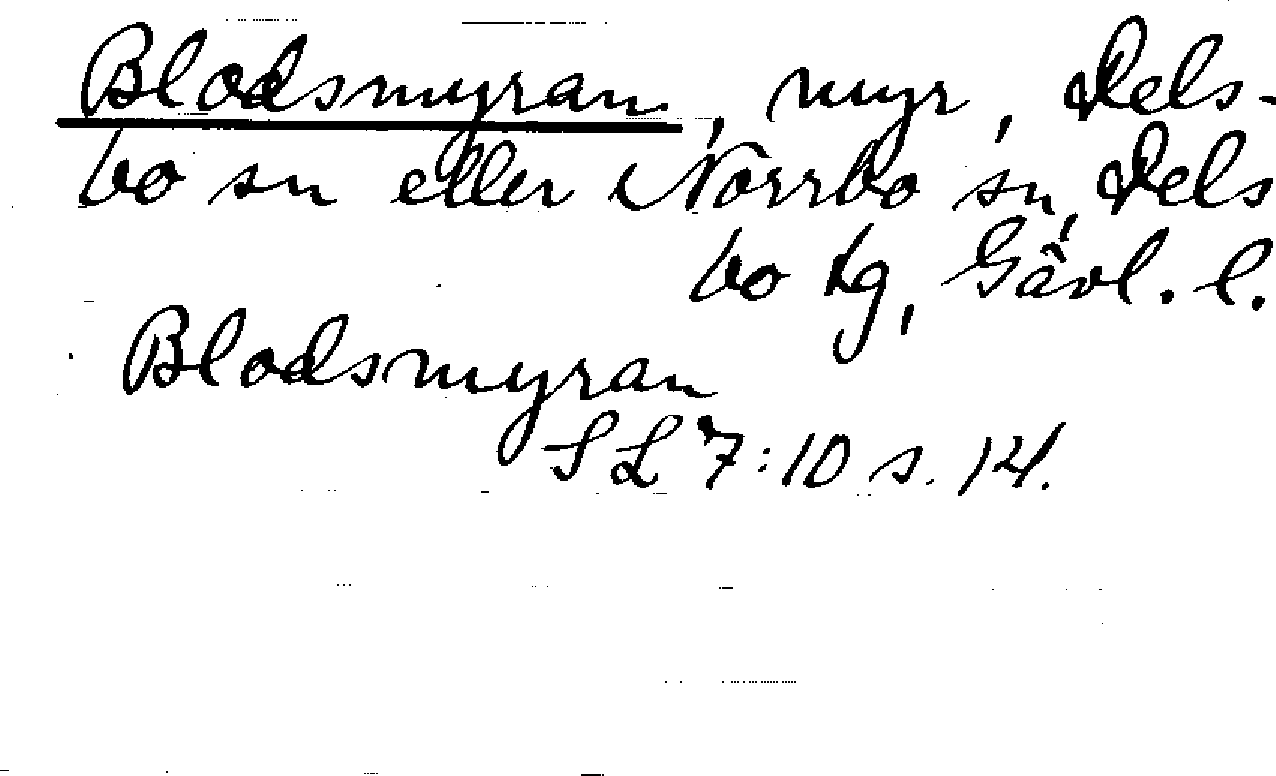 Blodsmyran, myr, Dels-
bo sn eller Norrbo sn, Dels
bo tg, Gävl. l.
Blodsmyran
SL 7:10 s. 14.